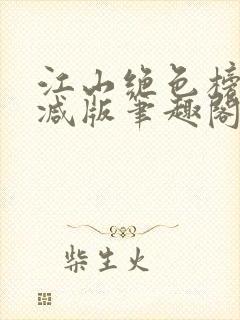 江山绝色榜
减版笔趣阁
柴生火